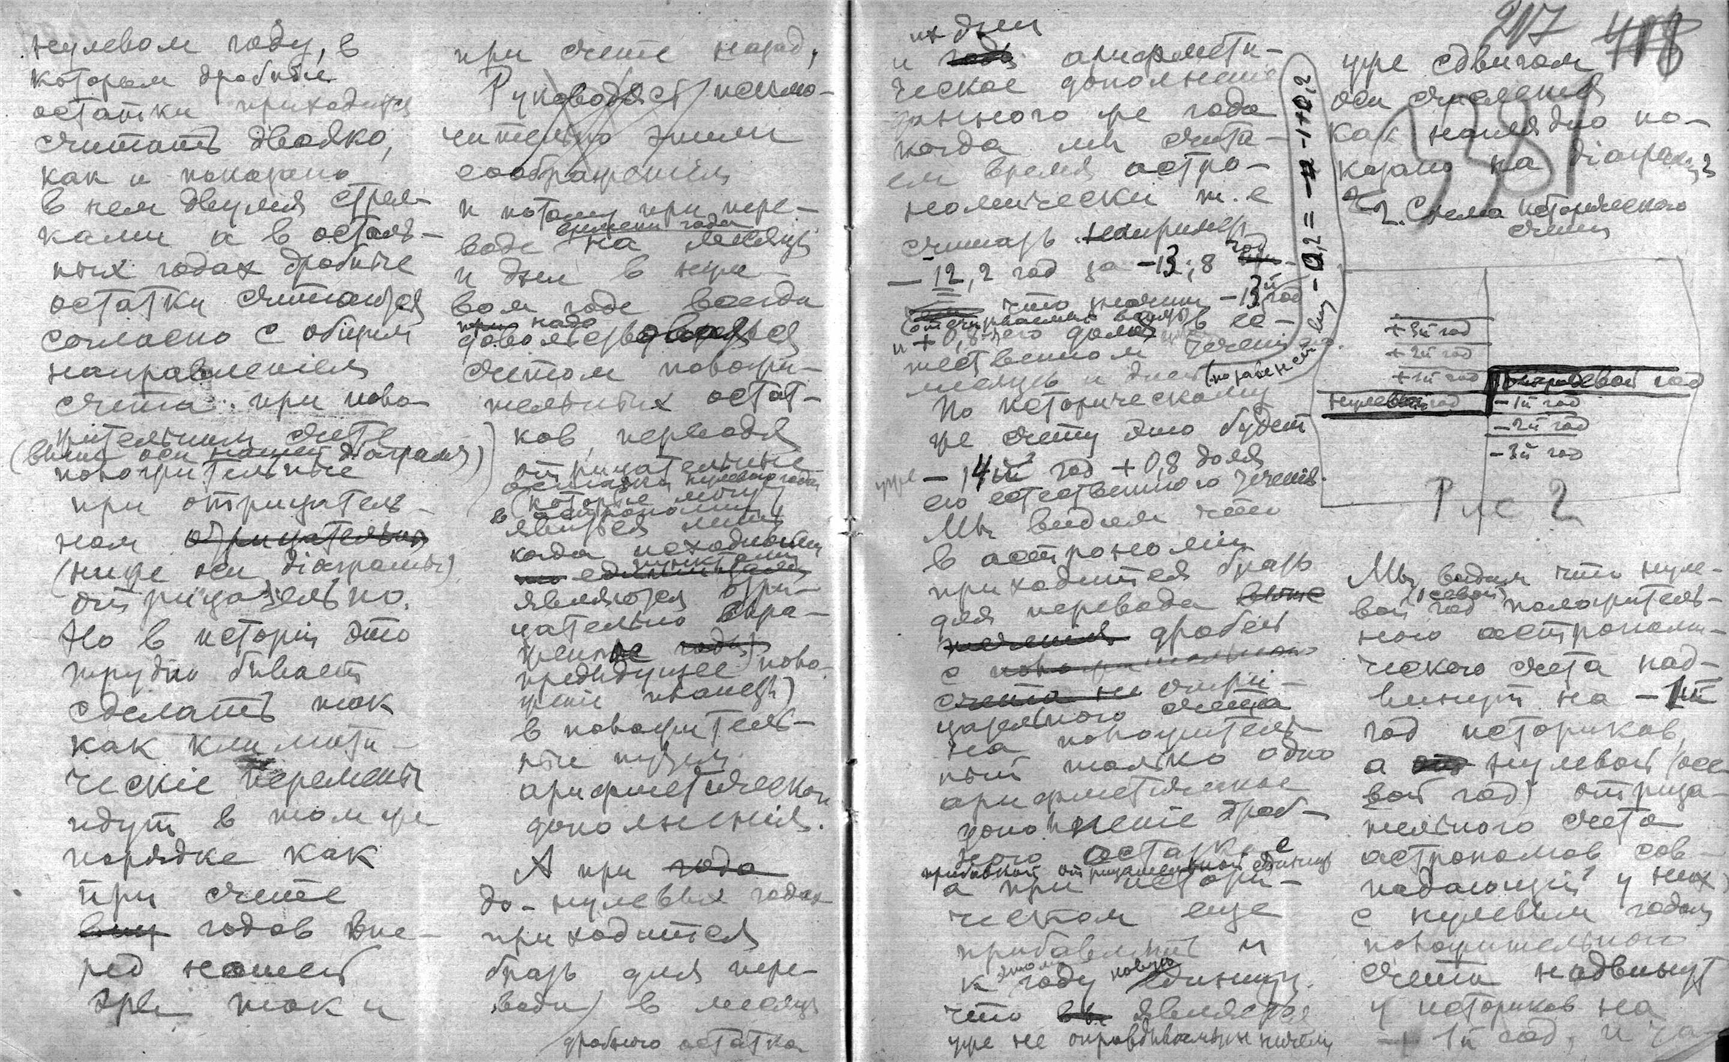 нулевом году, в
котором дробные
остатки приходится
считать двояко,
как и показано
в нем двумя стрел-
ками а в осталь-
ных годах дробные
остатки считаются
согласно с общим
направлением
счета: при поло-
жительном счете
(выше оси нашей діаграмы)
положительные
при отрицатель-
ном отрицательно
(ниже оси діаграмы)
отрицательно.
Но в исторіи это
трудно бывает
сделать так
как климати-
ческіе перемены
идут в том же
порядке как
при счете
годов впе-
ред нашей
эры так и
при счете назад,
Руководясь исклю-
чительно этими
соображеніями
и потому при пере-
воде времени года на месяцы
и дни в нуле-
вом годе всегда
надо
счетом положи-
тельных остат-
ков переводя
отрицательные
остатки нулевого года
(которые могут
в астрономіи
явиться лишь
когда исходными
пунктами
являются отри-
цательно выра-
женные годы
предидущее поло-
женіе планеты)
в положитель-
ные путем
арифметическаго
дополненія.
А при года
до-нулевых годах
приходится
брать для пере-
вода в месяцы
дробного остатка
их дни
и года арифмети-
ческое дополненіе
данного же года
когда мы счита-
ем время астро-
номически т.е
считать например
-12,2 год за -13,8 год
что значит -13й год
и +0,8 его доля в ес-
тественном теченіи
месяцы и дней
-0,2 = -1+0,8
По историческому
же счету это будет
уже -14й год +0,8 доля
его естественного теченія.
Мы видим что
в астрономіи
приходится брать
для перевода
дробей
с положительного
счета на отри-
цательного счета
на положитель-
ный только одно
арифметическое
дополненіе дроб-
ного остатка с
прибавкой отрицательной единицы
а при истори-
ческом еще
прибавлять и
к этому году новую единицу.
что является
уже не оправдываемым ничем
217 418
381
уже сдвигом
оси счисленія
как наглядно по-
казано на діаграмме
2. Схема исторического
счета
+3й год
+2й год
+1й год
нулевой год
нулевой год
-1й год
-2й год
-3й год
Рис 2
Мы видим что нуле-
вой (осевой) год положитель-
ного астрономи-
ческого счета над-
винут на -1й
год историков,
а нулевой (осе-
вой год) отрица-
тельного счета
астрономов сов-
падающій у них
с нулевым годом
положительного
счета надвинут
у историков на
+1й год, и